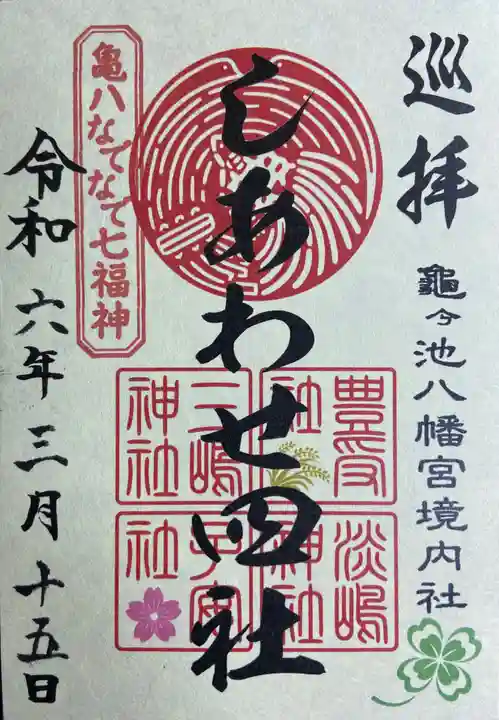 巡拝
龜ヶ池八幡宮境内社
しあわせ四社
亀八なでなで七福神
令和六年三月十五日
豊受社
三嶋神社
淡嶋神社
子安社